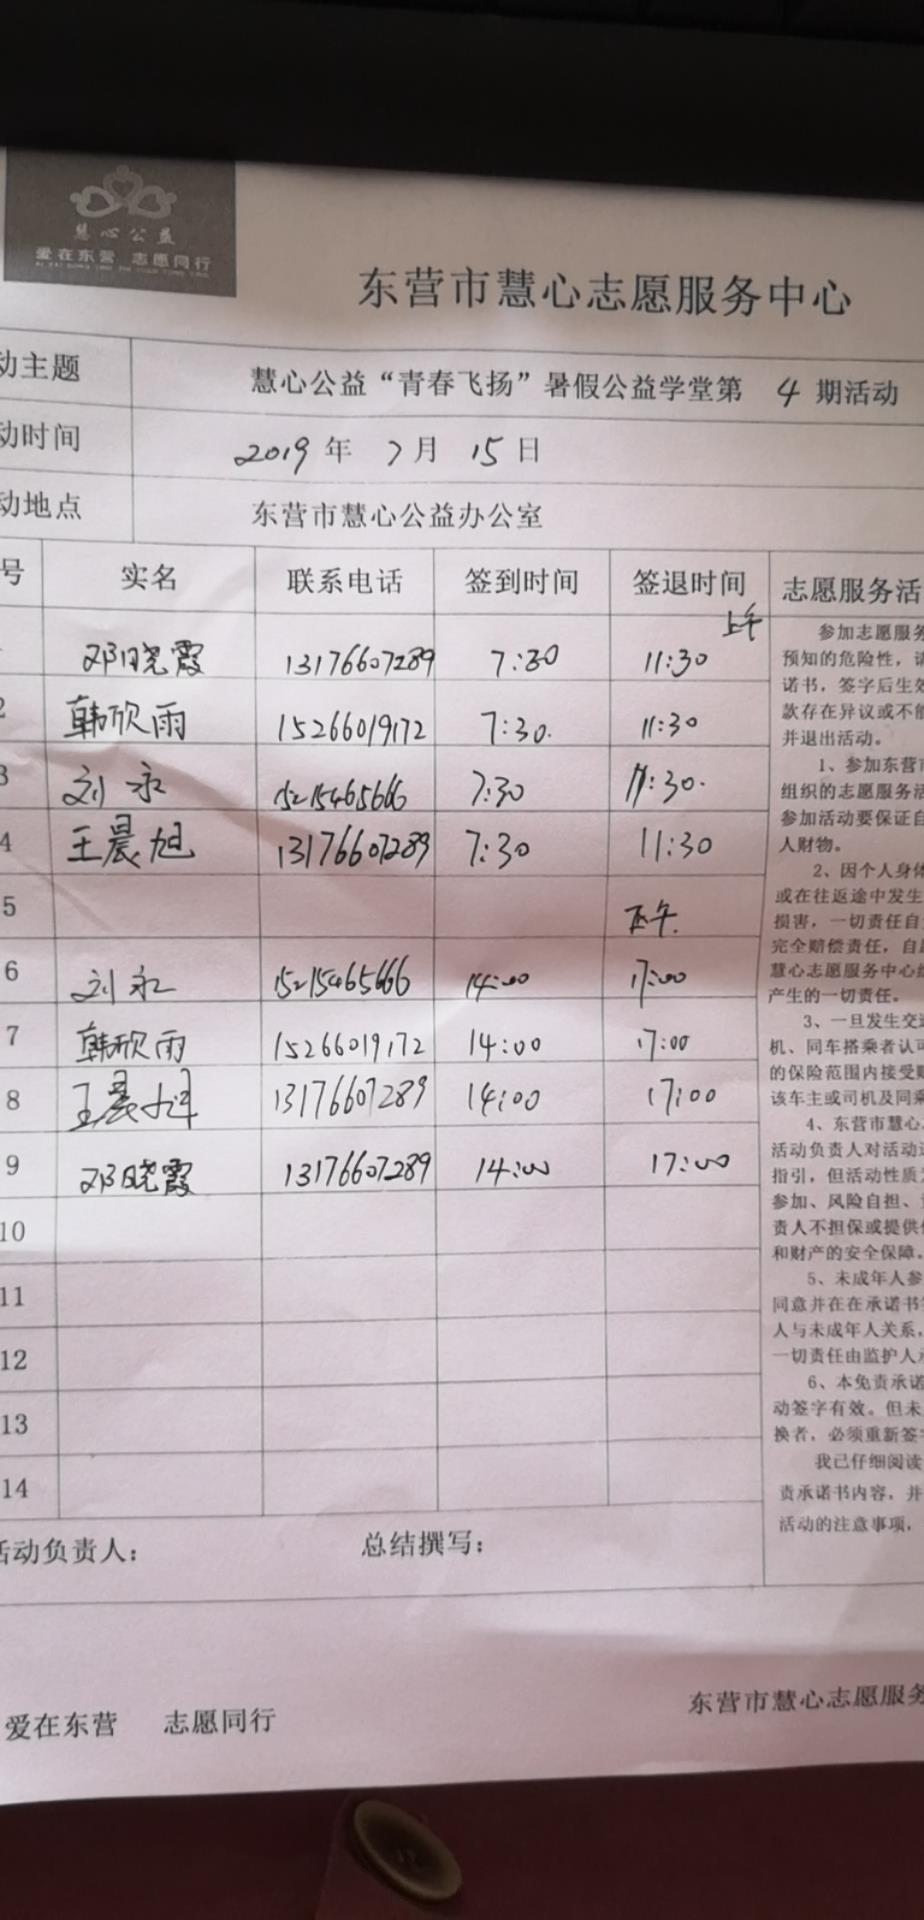 慧心公益
爱在东营 志愿同行
东营市慧心志愿服务中心
动主题 慧心公益“青春飞扬”暑假公益学堂第 4 期活动
动时间 2019 年 7月 15日
动地点 东营市慧心公益办公室
号 实名 联系电话 签到时间 签退时间 志愿服务活
上午
邓晓霞 13176607289 7:30 11:30
2 韩欣雨 15266019172 7:30. 11:30
3 刘永 15215465666 7:30 11:30.
4 王晨旭 13176607289 7:30 11:30
5 下午.
6 刘永 15215465666 14:00 17:00
7 韩欣雨 15266019172 14:00 17:00
8 王晨旭 13176607289 14:00 17:00
9 邓晓霞 13176607289 14:00 17:00
10
11
12
13
14
参加志愿服务
预知的危险性，请
诺书，签字后生效
款存在异议或不能
并退出活动。
1、参加东营市
组织的志愿服务活
参加活动要保证自
人财物。
2、因个人身体
或在往返途中发生
损害，一切责任自
完全赔偿责任，自愿
慧心志愿服务中心
产生的一切责任。
3、一旦发生交
机、同车搭乘者认可
的保险范围内接受
该车主或司机及同乘
4、东营市慧心
活动负责人对活动
指引，但活动性质
参加、风险自担、
责人不担保或提供
和财产的安全保障。
5、未成年人参
同意并在在承诺书
人与未成年人关系，
一切责任由监护人
6、本免责承诺
动签字有效。但未
换者，必须重新签字
我已仔细阅读
责承诺书内容，并
活动的注意事项，
活动负责人： 总结撰写：
爱在东营 志愿同行 东营市慧心志愿服务